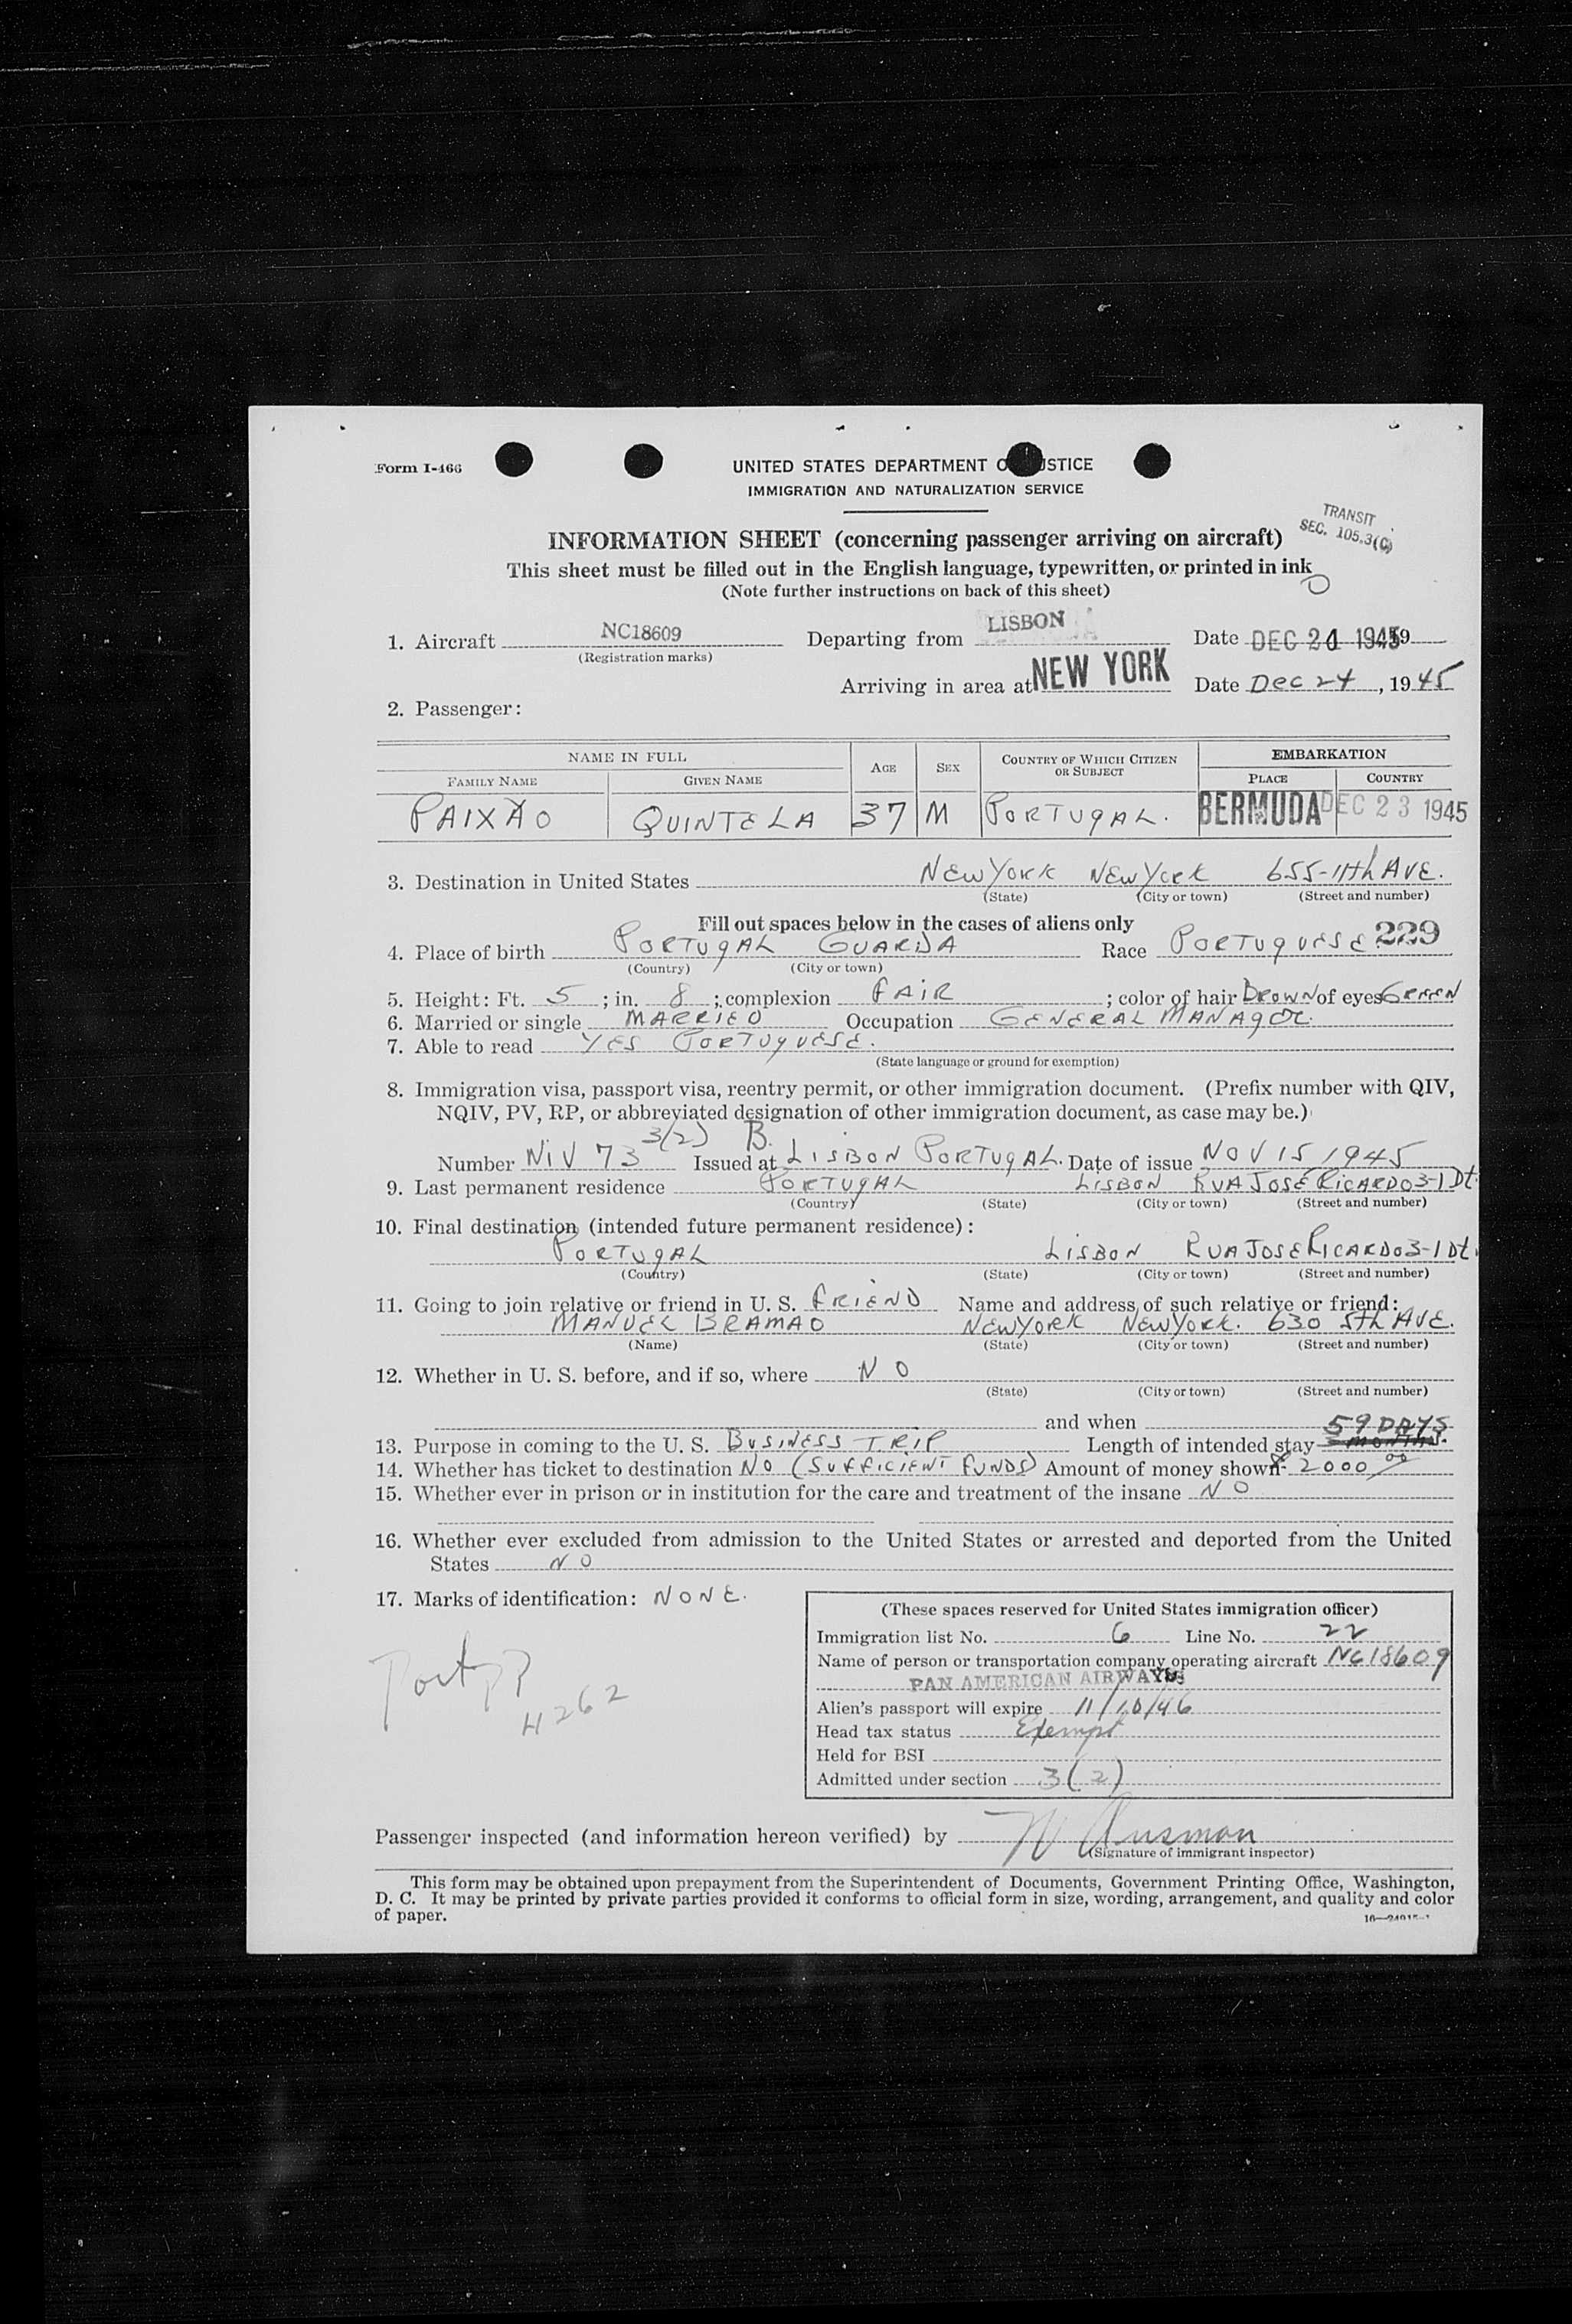 Form I-466
UNITED STATES DEPARTMENT OF JUSTICE
IMMIGRATION AND NATURALIZATION SERVICE
TRANSIT
SEC. 105.3(C)
INFORMATION SHEET (concerning passenger arriving on aircraft)
This sheet must be filled out in the English language, typewritten, or printed in ink
(Note further instructions on back of this sheet)
1. Aircraft NC18609 Departing from LISBON Date DEC 21 1945 19
(Registration marks)
Arriving in area at NEW YORK Date Dec 24, 1945
2. Passenger:
NAME IN FULL AGE SEX COUNTRY OF WHICH CITIZEN OR SUBJECT EMBARKATION
FAMILY NAME GIVEN NAME PLACE COUNTRY
PAIXÃO QUINTELA 37 M PORTUGAL. BERMUDA DEC 23 1945
3. Destination in United States NEW YORK NEW YORK 655-11th AVE.
(State) (City or town) (Street and number)
Fill out spaces below in the cases of aliens only
4. Place of birth PORTUGAL GUARDA Race PORTUGUESE 229
(Country) (City or town)
5. Height: Ft. 5; in. 8; complexion FAIR; color of hair BROWN of eyes GREEN
6. Married or single MARRIED Occupation GENERAL MANAGOR.
7. Able to read YES PORTUGUESE.
(State language or ground for exemption)
8. Immigration visa, passport visa, reentry permit, or other immigration document. (Prefix number with QIV,
NQIV, PV, RP, or abbreviated designation of other immigration document, as case may be.)
3(2) B.
Number NIV 73 Issued at LISBON PORTUGAL. Date of issue NOV 15 1945
9. Last permanent residence PORTUGAL LISBON RUA JOSE RICARDO 3-1 Dt.
(Country) (State) (City or town) (Street and number)
10. Final destination (intended future permanent residence):
PORTUGAL LISBON RUA JOSE RICARDO 3-1 Dt.
(Country) (State) (City or town) (Street and number)
11. Going to join relative or friend in U. S. FRIEND Name and address of such relative or friend:
MANUEL BRAMAO NEW YORK NEW YORK. 630 5th AVE.
(Name) (State) (City or town) (Street and number)
12. Whether in U. S. before, and if so, where NO
(State) (City or town) (Street and number)
and when
59 DAYS
13. Purpose in coming to the U. S. BUSINESS TRIP Length of intended stay 3 MONTHS.
14. Whether has ticket to destination NO (SUFFICIENT FUNDS) Amount of money shown $ 2000 00
15. Whether ever in prison or in institution for the care and treatment of the insane NO
16. Whether ever excluded from admission to the United States or arrested and deported from the United
States NO
17. Marks of identification: NONE.
(These spaces reserved for United States immigration officer)
Immigration list No. 6 Line No. 22
Name of person or transportation company operating aircraft NC18609
PAN AMERICAN AIRWAYS
Alien's passport will expire 11/10/46
Head tax status Exempt
Held for BSI
Admitted under section 3(2)
Port PP
4262
Passenger inspected (and information hereon verified) by
(Signature of immigrant inspector)
This form may be obtained upon prepayment from the Superintendent of Documents, Government Printing Office, Washington,
D. C. It may be printed by private parties provided it conforms to official form in size, wording, arrangement, and quality and color
of paper.